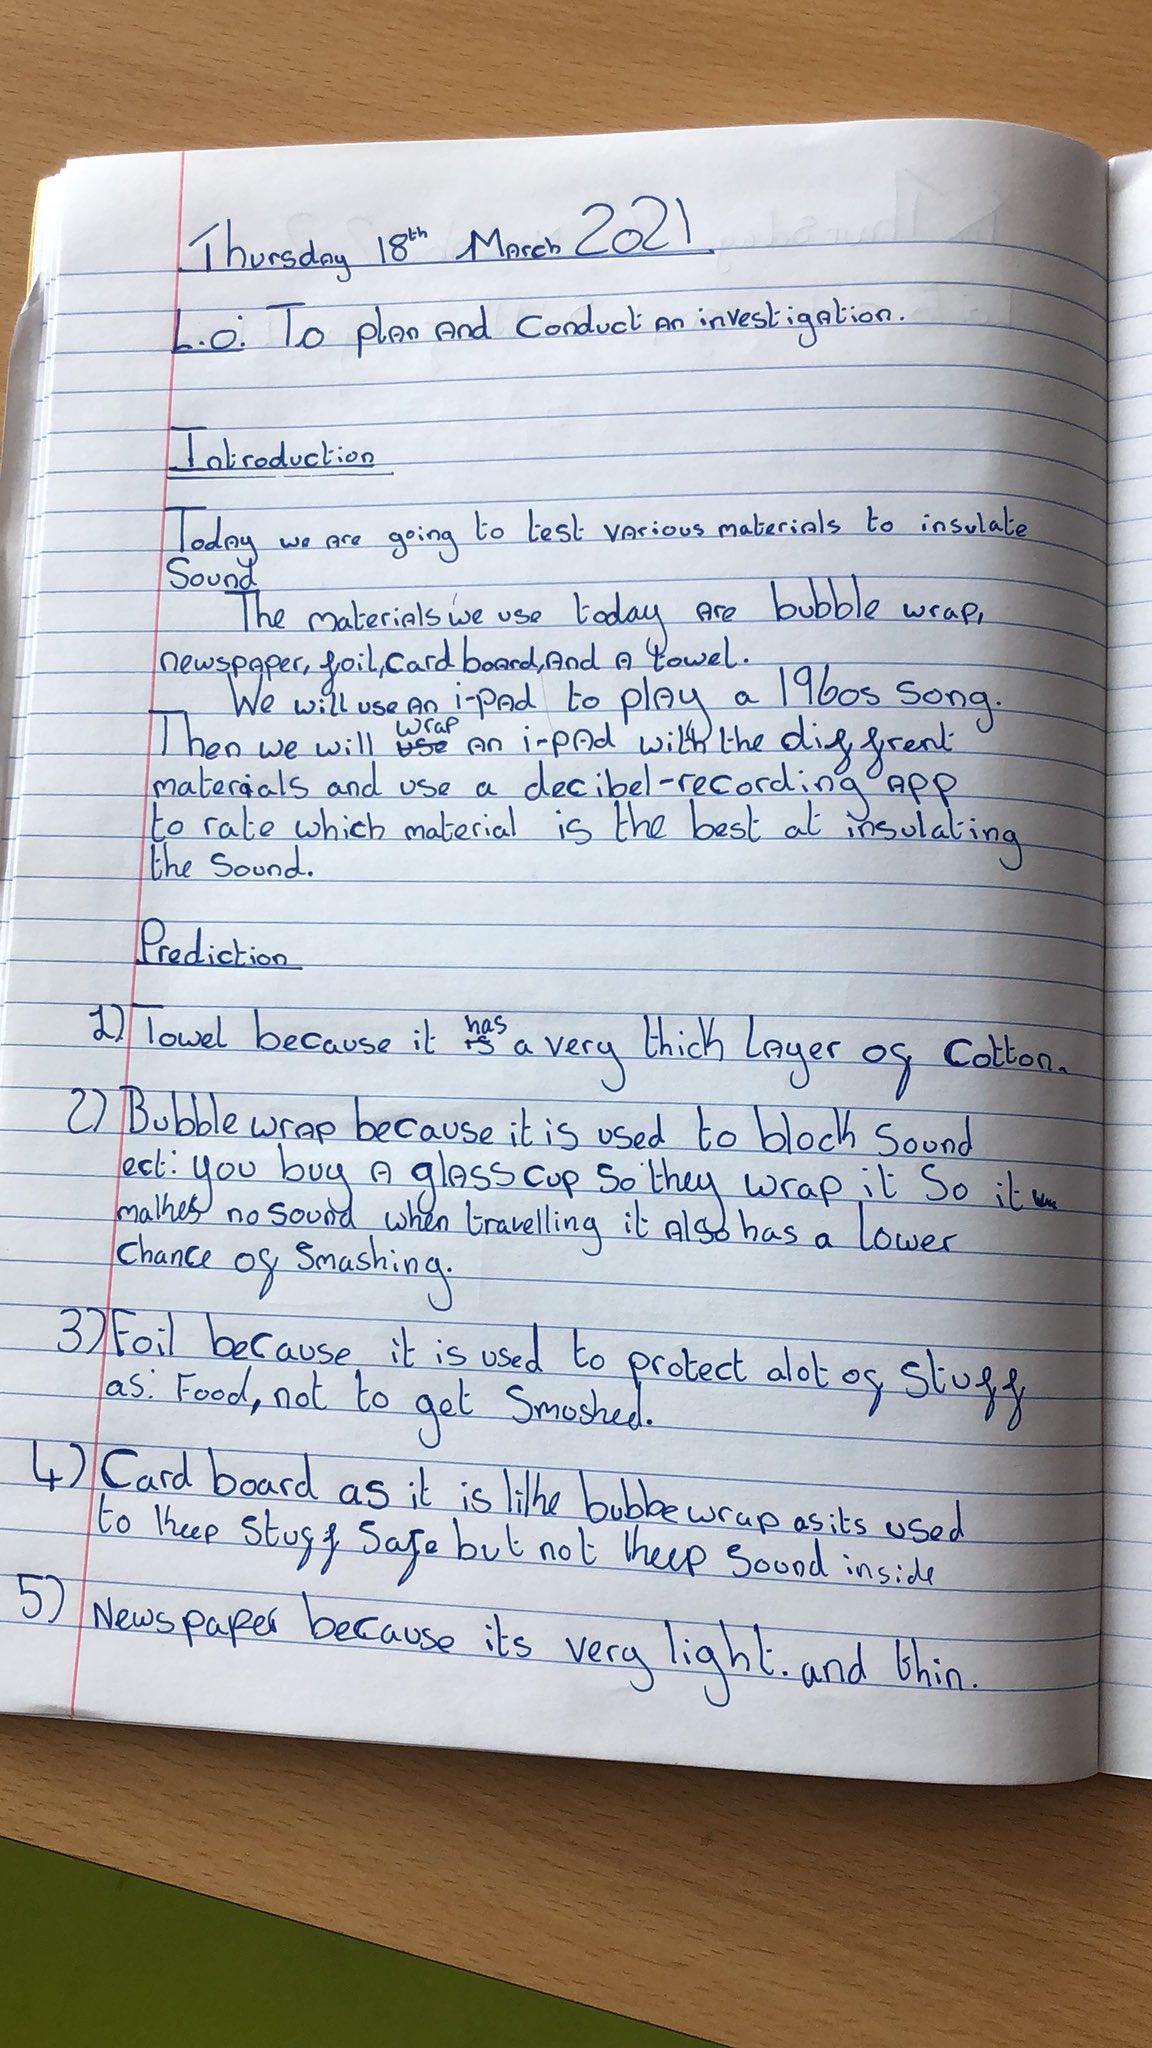 Thursday 18th March 2021
L.o: To plan and conduct an investigation.
Introduction
Today we are going to test various materials to insulate
Sound
The materials we use today are bubble wrap,
newspaper, foil, cardboard, and a towel.
We will use an i-pad to play a 1960s song.
Then we will wrap an i-pad with the diffrent
materials and use a decibel-recording app
to rate which material is the best at insulating
the sound.
Prediction
1) Towel because it has a very thick layer of cotton.
2) Bubble wrap because it is used to block sound
ect: you buy a glass cup so they wrap it so it
makes no sound when travelling it also has a lower
chance of smashing.
3) Foil because it is used to protect alot of stuff
as: Food, not to get smoshed.
4) Card board as it is like bubbe wrap as its used
to keep stuff safe but not keep sound inside
5) Newspaper because its very light. and thin.